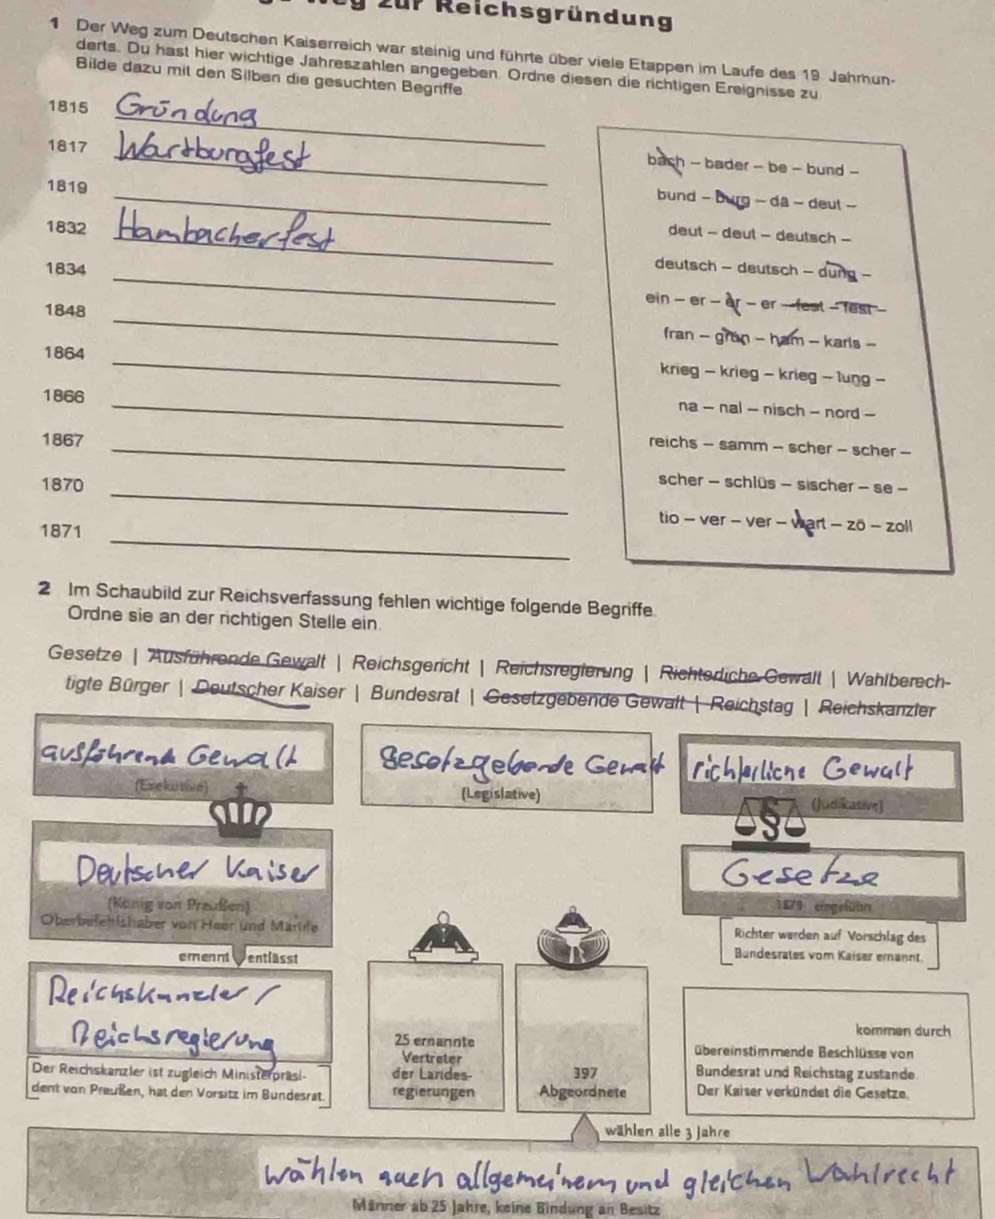 zur Reichsgründung
1 Der Weg zum Deutschen Kaiserreich war steinig und führte über viele Etappen im Laufe des 19. Jahrhun-
derts. Du hast hier wichtige Jahreszahlen angegeben. Ordne diesen die richtigen Ereignisse zu.
Bilde dazu mit den Silben die gesuchten Begriffe.
1815 Gründung
1817 Wartburgfest
1819
1832 Hambacherfest
1834
1848
1864
1866
1867
1870
1871
bach – bader – be – bund –
bund – burg – dä – deut –
deut – deut – deutsch –
deutsch – deutsch – dung –
ein – er – er – er – fest – fest –
fran – grün – ham – karls –
krieg – krieg – krieg – lung –
na – nal – nisch – nord –
reichs – samm – scher – scher –
scher – schlüs – sischer – se –
tio – ver – ver – wart – zö – zoll
2 Im Schaubild zur Reichsverfassung fehlen wichtige folgende Begriffe.
Ordne sie an der richtigen Stelle ein.
Gesetze | Ausführende Gewalt | Reichsgericht | Reichsregierung | Richterliche Gewalt | Wahlberech-
tigte Bürger | Deutscher Kaiser | Bundesrat | Gesetzgebende Gewalt | Reichstag | Reichskanzler
ausführend Gewalt
(Exekutive)
gesetzgebende Gewalt
(Legislative)
richterliche Gewalt
(Judikative)
Deutscher Kaiser
(König von Preußen)
Oberbefehlshaber von Heer und Marine
ernennt entlässt
Reichskanzler /
Reichsregierung
Der Reichskanzler ist zugleich Ministerpräsi-
dent von Preußen, hat den Vorsitz im Bundesrat.
25 ernannte
Vertreter
der Landes-
regierungen
397
Abgeordnete
§
Gesetze
1879 eingeführt
Richter werden auf Vorschlag des
Bundesrates vom Kaiser ernannt.
kommen durch
übereinstimmende Beschlüsse von
Bundesrat und Reichstag zustande.
Der Kaiser verkündet die Gesetze.
wählen alle 3 Jahre
wählen nach allgemeinem und gleichen Wahlrecht
Männer ab 25 Jahre, keine Bindung an Besitz